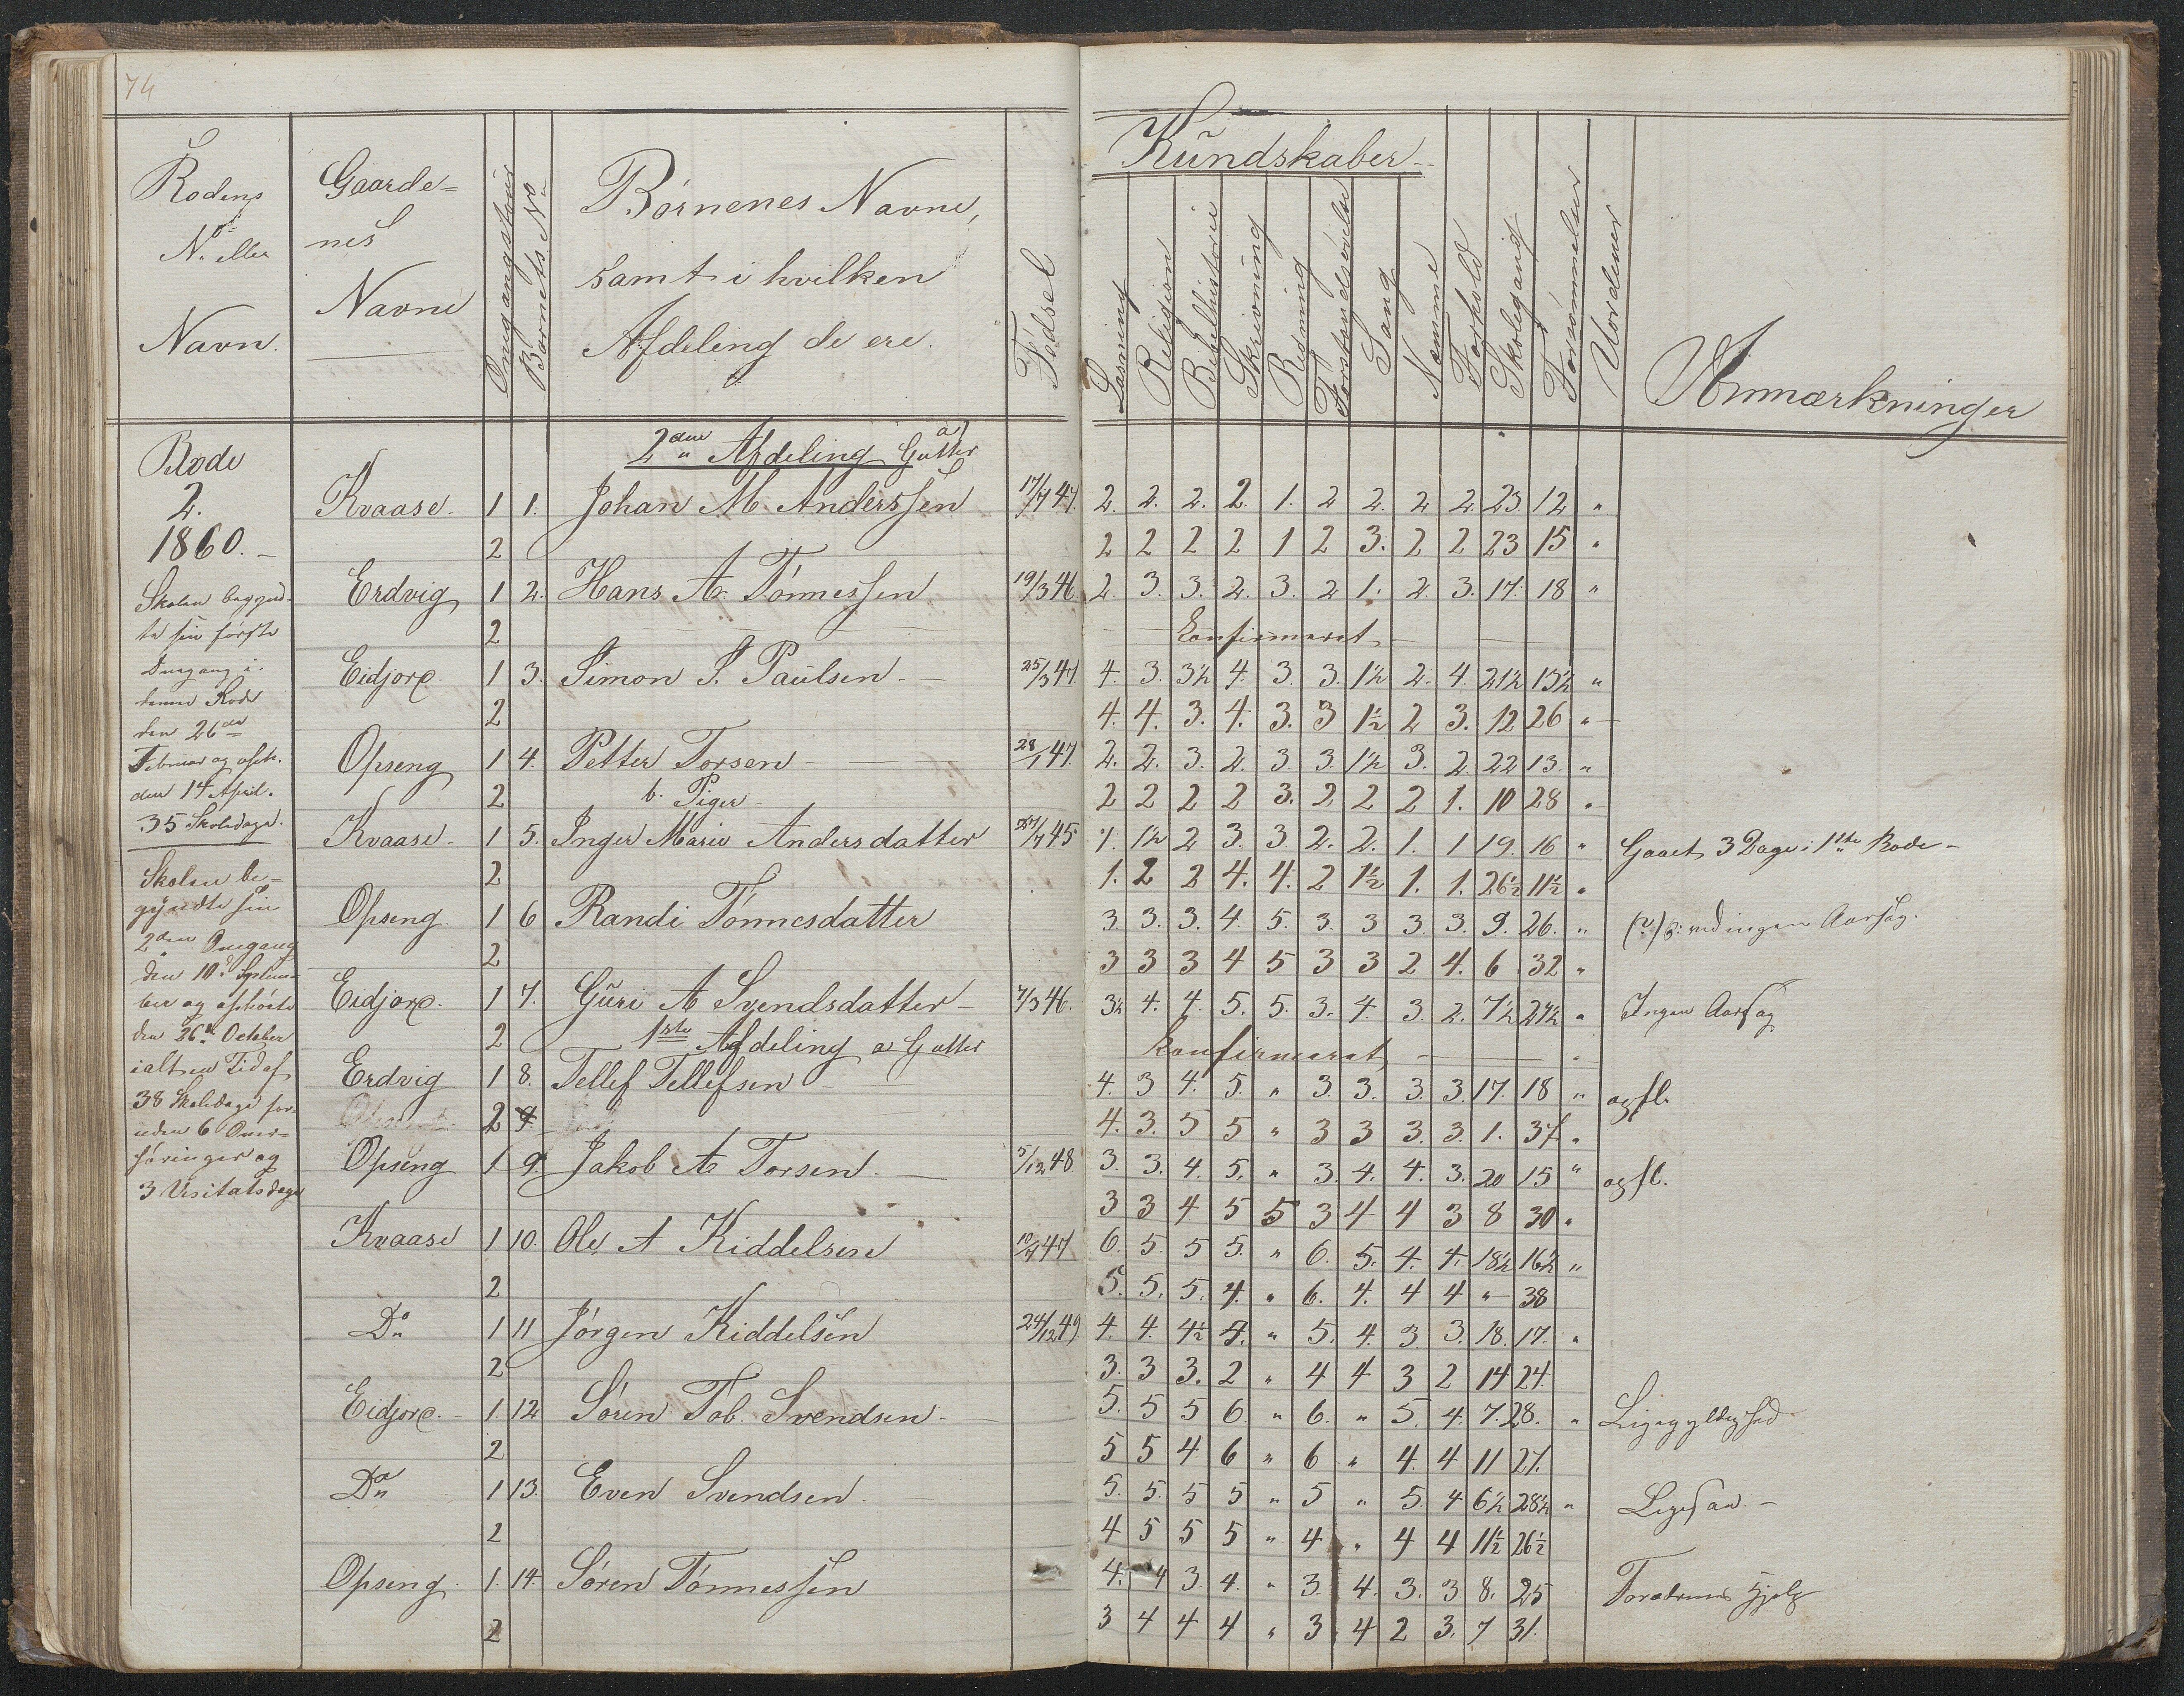 74
Rodens
No eller
Navn.
Gaarde=
nes
Navne
Omgangstour
Barnets No
Børnenes Navne,
samt i hvilken
Afdeling de ere.
Fødsel
Kundskaber
Læsning
Religion
Bibelhistorie
Skrivning
Regning
Forstandsøvelse
Sang
Nemme
Forhold
Skolegang
Forsømmelser
Uordener
Anmærkninger
Rode
2.
1860.
Skolen begynd-
te sin første
Omgang i
denne Rode
den 26de
Februar og ophr.
den 14 April.
35 Skoledage.
Skolen be=
gyndte sin
2den Omgang
den 10de Septem-
ber og ophørte
den 26de October
ialt en Tid af
38 Skoledage for-
uden 6 Over-
høringer og
3 Visitatsdage
2den Afdeling a) Gutter
Kvaase. 1 1. Johan M Anderssen 17/7 47. 2. 2. 2. 2. 1. 2 2. 2 2. 23. 12 "
2 2 2 2 2 1 2 3. 2 2 23 15 "
Erdvig 1 2. Hans A Tønnessen 19/3 46 2. 3. 3. 2. 3. 2 1. 2. 3. 17. 18 "
2 Konfirmeret
Eidjord. 1 3. Simon S. Paulsen 25/3 47. 4. 3. 3½ 4. 3. 3. 1½ 2. 4. 21½ 13½ "
2 4. 4. 3. 4. 3. 3 1½ 2 3. 12 26 "
Opseng 1 4. Petter Torsen 28/1 47. 2. 2. 3. 2. 3. 3. 1½ 3. 2. 22 13. "
2 b. Piger 2 2 2 2 3. 2 2 2 1. 10 28 "
Kvaase. 1 5. Inger Marie Andersdatter 27/7 45 1. 1½ 2 3. 3. 2. 2. 1. 1 19. 16 " Gaaet 3 Dage i 1ste Rode
2 1. 2 2 4. 4. 2 1½ 1. 1. 26½ 11½ "
Opseng. 1 6 Randi Tønnesdatter 3 3. 3. 4. 5. 3. 3 3. 3. 9. 26. " ved ingen Aarsag.
2 3 3 3 4 5 3 3 2 4. 6 32 "
Eidjord. 1 7. Guri A Svendsdatter 7/3 46. 3½ 4. 4. 5. 5. 3. 4. 3. 2. 7½ 27½ " Ingen Aarsag
2 1ste Afdeling a Gutter Konfirmeret
Erdvig 1 8. Tellef Tellefsen 4. 3 4. 5. " 3. 3. 3. 3. 17. 18 " opfl.
2 9. 4. 3. 5 5 " 3 3 3. 3. 1. 37. "
Opseng 1 9. Jakob A Torsen 5/12 48 3. 3. 4. 5. " 3. 4. 4. 3. 20 15 " opfl.
3 3 4 5 5 3 4 4 3 8 30 "
Kvaase 1 10. Ole A Kiddelsen 10/7 47 6. 5. 5 5. " 6. 5. 4. 4. 18½ 16½ "
2 5. 5. 5. 4. " 6. 4. 4 4 " 38
Do 1 11 Jørgen Kiddelsen 24/12 49. 4. 4. 4½ 4. " 5. 4. 3 3. 18. 17. "
2 3. 3 3. 2 " 4 4 3 2 14 24.
Eidjord. 1. 12 Søren Tob. Svendsen 5. 5 5 6. " 6. " 5. 4. 7. 28. " Ligegyldighed
2 5 5 4 6 " 6 " 4. 4 11 27.
Do 1 13. Even Svendsen. 5. 5. 5 5 " 5 " 5. 4 6½ 28½ " Ligesaa.
2 4 5 5 5 " 4 " 4 4 11½ 26½
Opseng. 1. 14. Søren Tønnessen 4. 4 3 4. " 3. 4. 3. 3. 8. 25 Forældrenes Hjelp
2 3 4 4 4 " 3 4 2 3. 7 31.